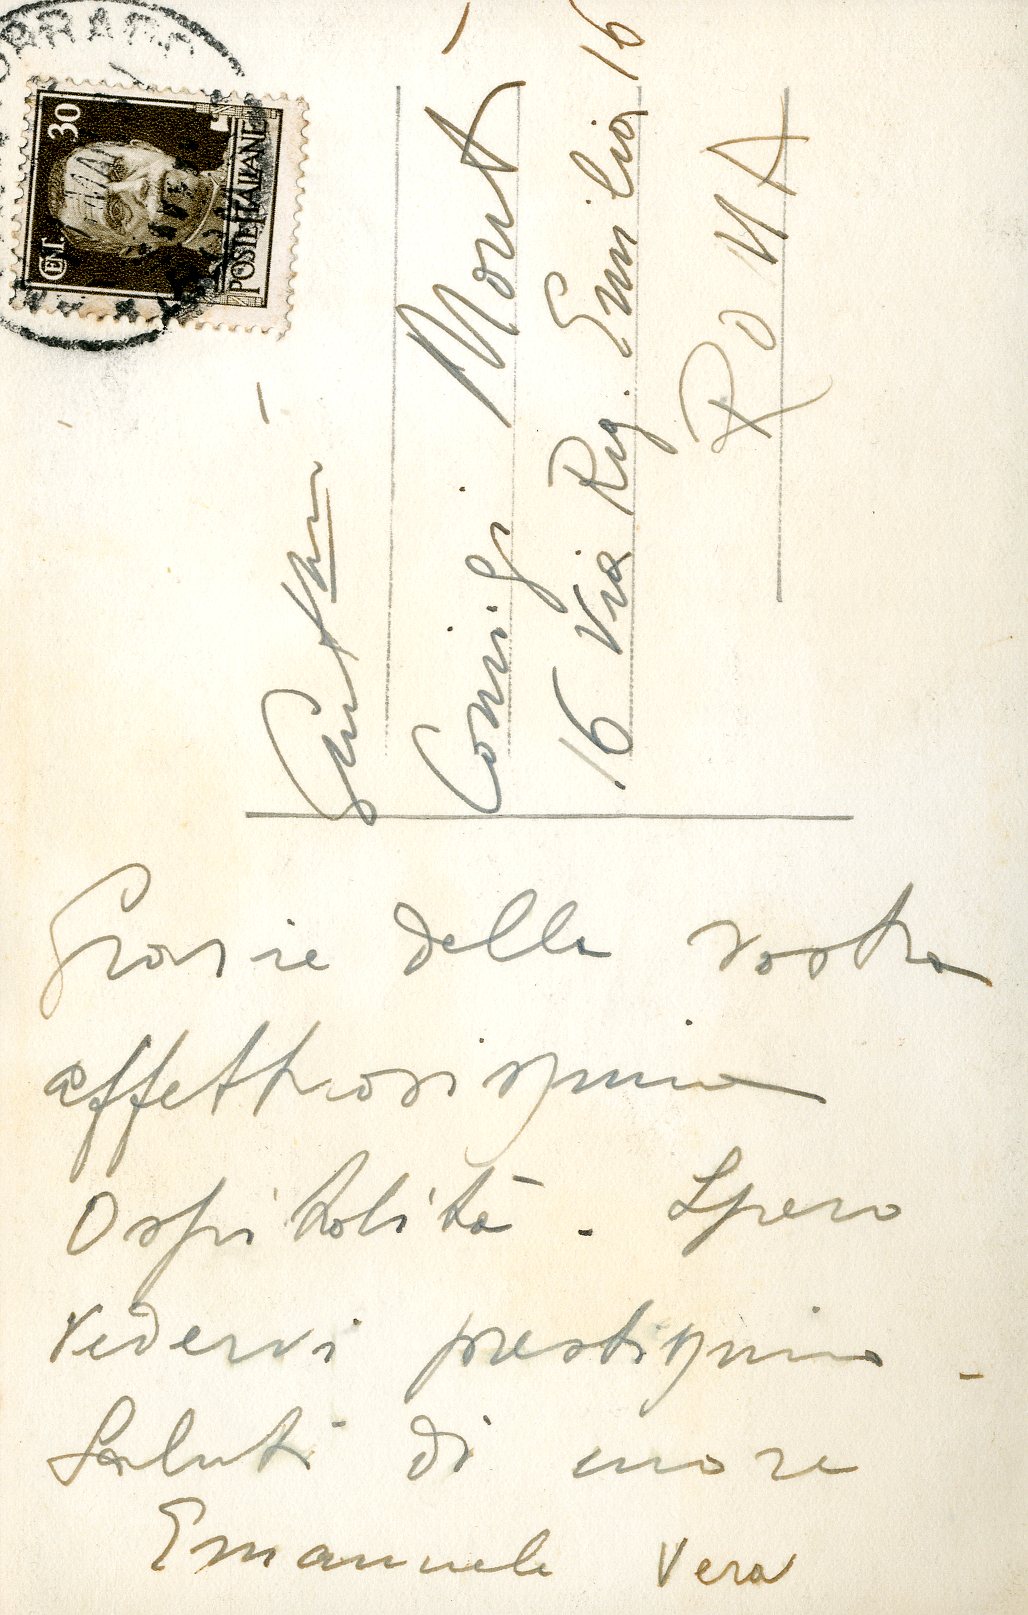 CENT. 30
POSTE ITALIANE
Gent.mi
Coniugi Monti
16 Via Reg. Emilia 16
ROMA
Grazie della vostra
affettuosissima
Ospitalità. Spero
vedervi prestissimo -
Saluti di cuore
Emanuele Vera